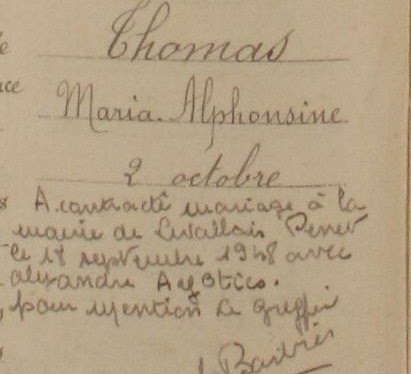 Thomas
Maria Alphonsine
2 octobre
A contracté mariage à la
mairie de Levallois Perret
le 18 septembre 1948 avec
alexandre
pour mention Le greffier